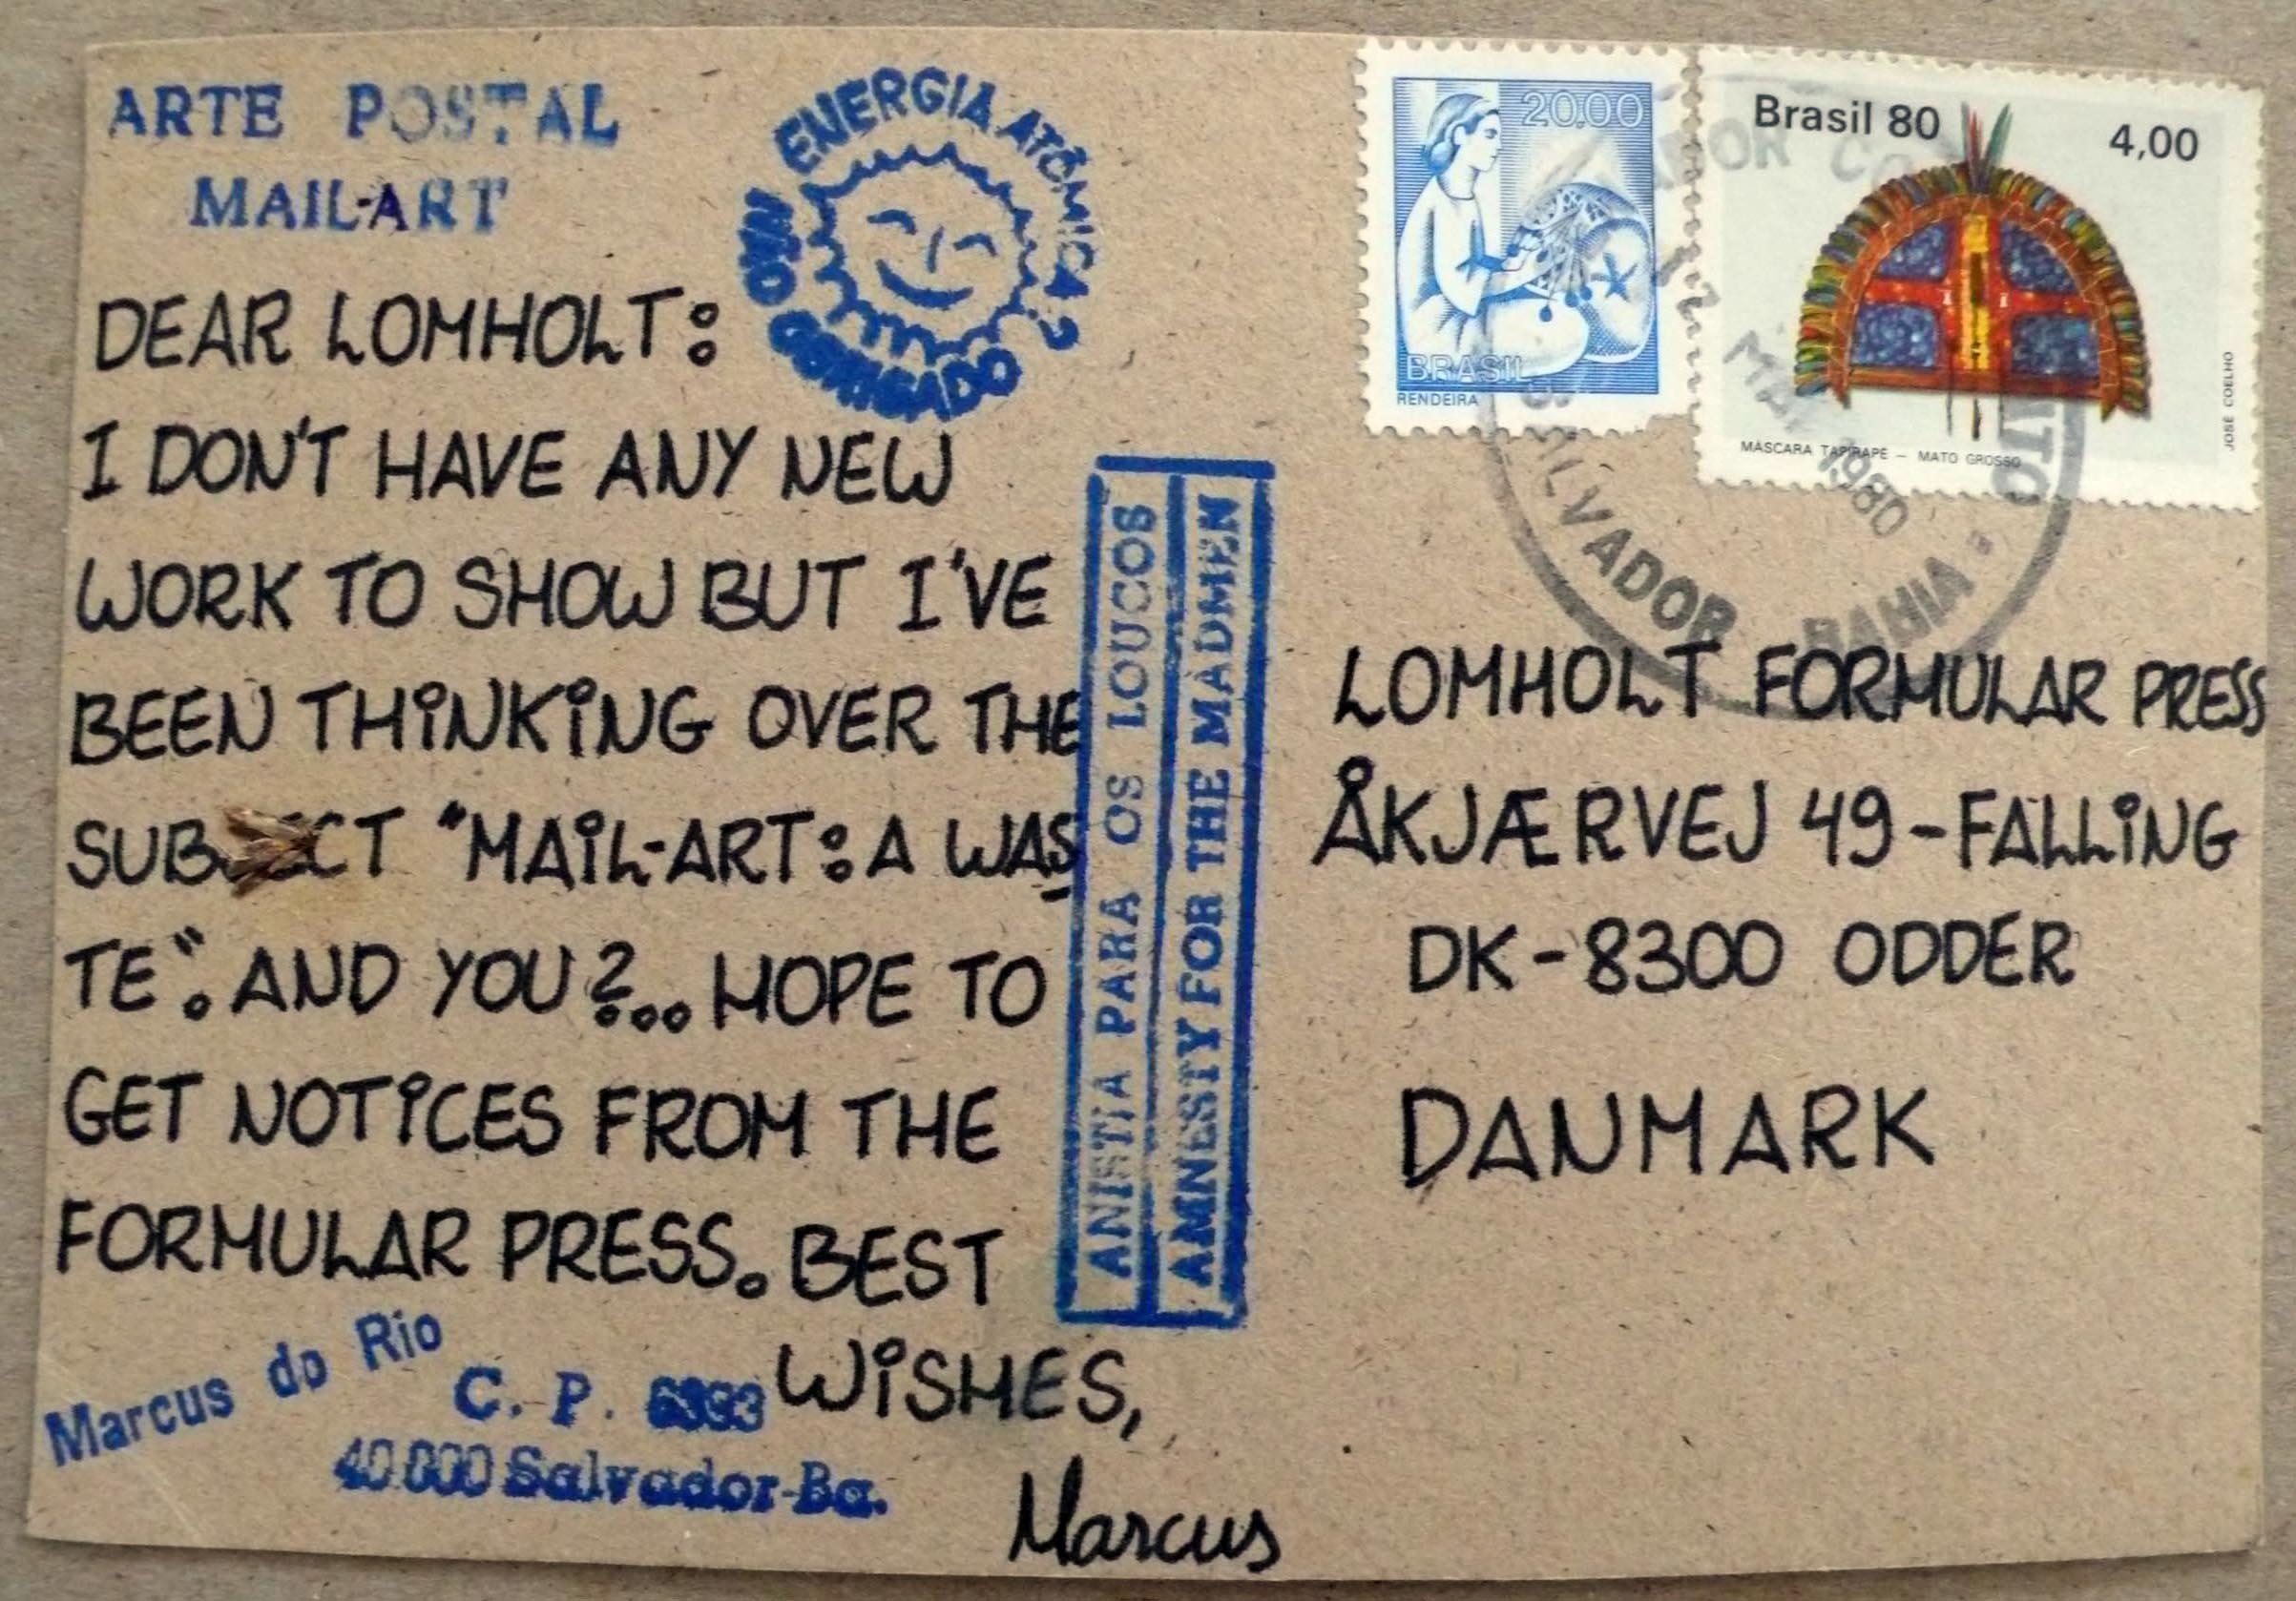 ARTE POSTAL
MAIL-ART
ENERGIA ATÔMICA?
NÃO OBRIGADO
DEAR LOMHOLT:
I DON'T HAVE ANY NEW
WORK TO SHOW BUT I'VE
BEEN THINKING OVER THE
SUB CT "MAIL-ART: A WAS
TE". AND YOU?... HOPE TO
GET NOTICES FROM THE
FORMULAR PRESS. BEST
WISHES,
Marcus
Marcus do Rio
C. P.
40.000 Salvador-Ba.
ANISTIA PARA OS LOUCOS
AMNESTY FOR THE MADMEN
20,00
BRASIL
RENDEIRA
Brasil 80
4,00
MÁSCARA TAPIRAPÉ – MATO GROSSO
JOSÉ COELHO
1980
SALVADOR BAHIA
LOMHOLT FORMULAR PRESS
ÅKJÆRVEJ 49 - FALLING
DK - 8300 ODDER
DANMARK